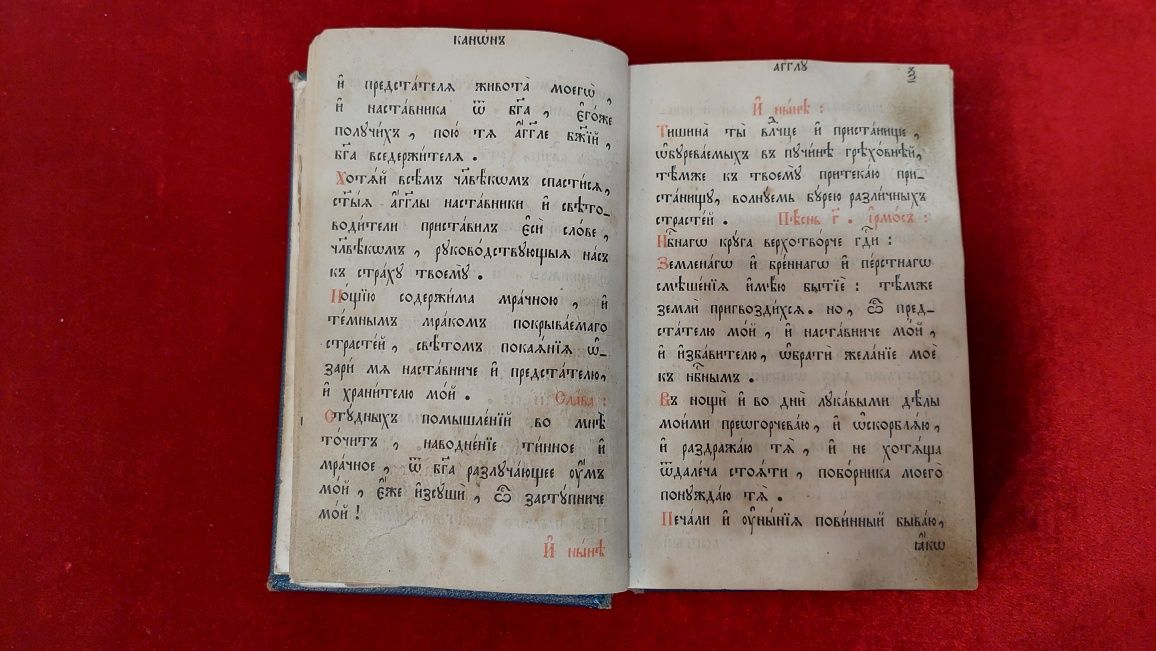 КАНѠ́НЪ
и҆ предста́телѧ живота̀ моегѡ̀,
и҆ наста́вника ѿ бг҃а, є҆го́же
получи́хъ, пою̀ тѧ̀ а҆́гг҃ле бж҃їй,
бг҃а вседержи́телѧ.
Хотѧ́й всѣ̑мъ чл҃вѣ́кѡмъ спасти́сѧ,
ст҃ы́ѧ а҆́гг҃лы наста́вники и҆ свѣто-
води́тели приста́вилъ є҆сѝ сло́ве,
чл҃вѣ́кѡмъ, руково́дствующыѧ на́съ
къ стра́ху твоемꙋ̀.
Но́щїю содержи́ма мра́чною, и҆
те́мнымъ мра́комъ покрыва́емаго
страсте́й, свѣ́томъ покаѧ́нїѧ ѡ҆-
зарѝ мѧ наста́вниче и҆ предста́телю,
и҆ храни́телю мо́й. Сла́ва:
Стꙋ́дныхъ помышле́нїй во мнѣ̀
то́читъ, наводне́нїе ти́нное и҆
мра́чное, ѿ бг҃а разлуча́ющее ᲂу҆́мъ
мо́й, є҆́же и҆зсꙋшѝ, ѽ засту́пниче
мо́й!
И҆ ны́нѣ
А҆́ГГ҃ЛУ
з҃
И҆ ны́нѣ:
Тишина̀ ты̀ влⷣчце и҆ приста́нище,
ѡ҆бурева́емыхъ въ пучи́нѣ грѣхо́внѣй,
тѣ́мже къ твоемꙋ̀ притека́ю при-
ста́нищꙋ, волну́емь бу́рею разли́чныхъ
страсте́й. Пѣ́снь г҃. і҆рмо́съ:
Нбⷭ҇нагѡ кру́га верхотво́рче гдⷭ҇и:
Земле́нагѡ и҆ бре́ннагѡ и҆ пе́рстнагѡ
смѣше́нїѧ и҆мѣ́ю бытїѐ: тѣ́мже
землѝ пригвозди́хсѧ. но, ѽ пред-
ста́телю мо́й, и҆ наста́вниче мо́й,
и҆ и҆зба́вителю, ѡ҆братѝ жела́нїе моѐ
къ нбⷭ҇нымъ.
Въ нощѝ и҆ во днѝ лука́выми дѣ́лы
мои́ми преѡгорчева́ю, и҆ ѡ҆скорблѧ́ю,
и҆ раздража́ю тѧ̀, и҆ не хотѧ́ща
ѿдале́ча стоѧ́ти, побо́рника моего̀
понужда́ю тѧ̀.
Печа́ли и҆ ᲂу҆ны́нїѧ пови́нный быва́ю,
ꙗ҆́кѡ